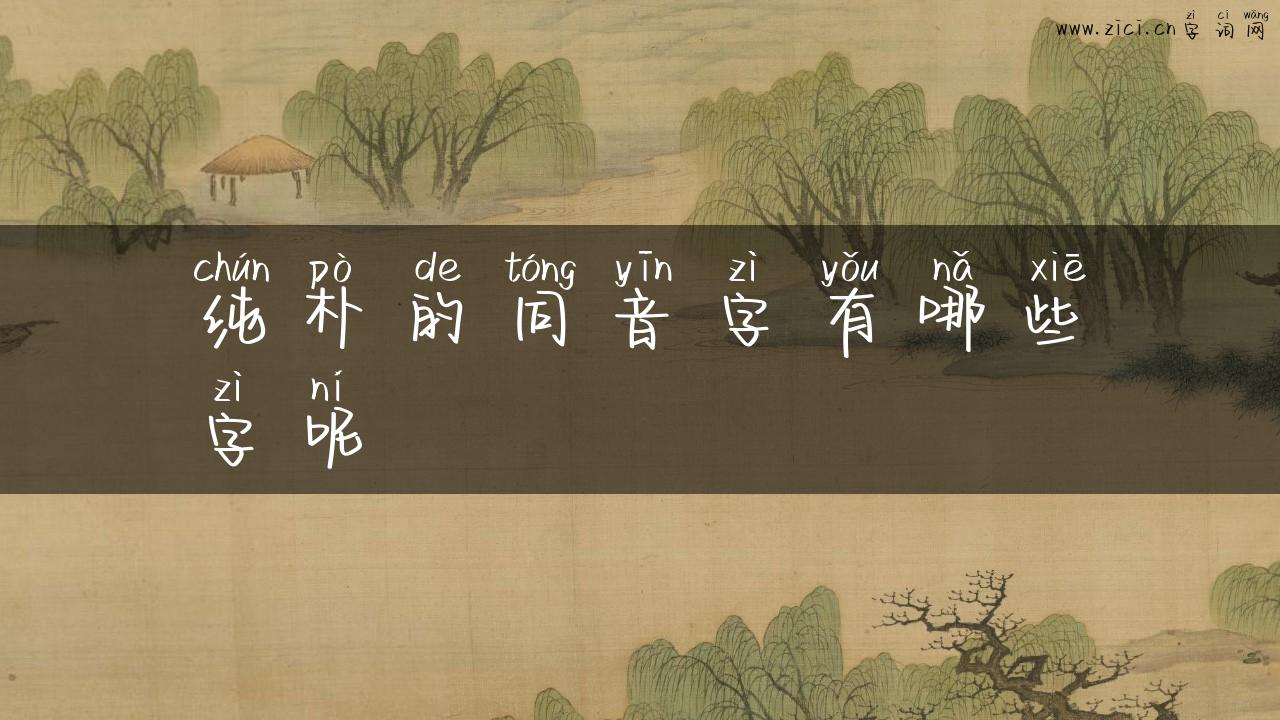 zì cí wǎng
www.zici.cn 字词网
chún pò de tóng yīn zì yǒu nǎ xiē
纯朴的同音字有哪些
zì ní
字呢